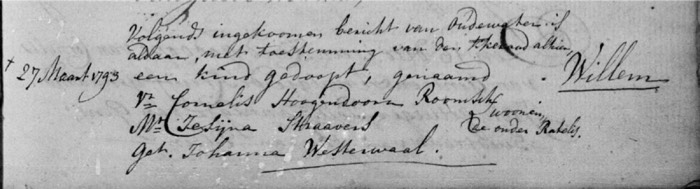 Volgends ingekoomen bericht van Oudewater is
aldaar, met toestemming van den kerkenraad alhier
† 27 Maart 1793 een kind gedoopt, genaamd Willem
Vr Cornelis Hoogendoorn Roomsch
Mr Jesijna Straavers woonen
onder Rateles.
Get. Johanna Westerwaal.